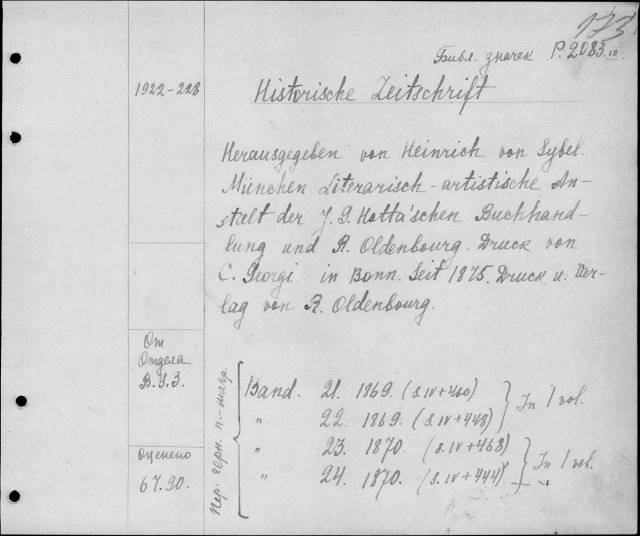 173
Библ. значек P. 2083.
1922-228
Historische Zeitschrift
Herausgegeben von Heinrich von Sybel.
München Literarisch-artistische An-
stalt der J. G. Kotta'schen Buchhand-
lung und R. Oldenbourg. Druck von
C. Georgi in Bonn. Seit 1875. Druck u. Ver-
lag von R. Oldenbourg.
От
Отдела
В. З.
Пер. черн. п.-шагр.
Band. 21. 1869. (S. IV+460)
" 22. 1869. (S. IV+448) In 1 vol.
" 23. 1870. (S. IV+468)
" 24. 1870. (S. IV+444) In 1 vol.
Оценено
67.90.